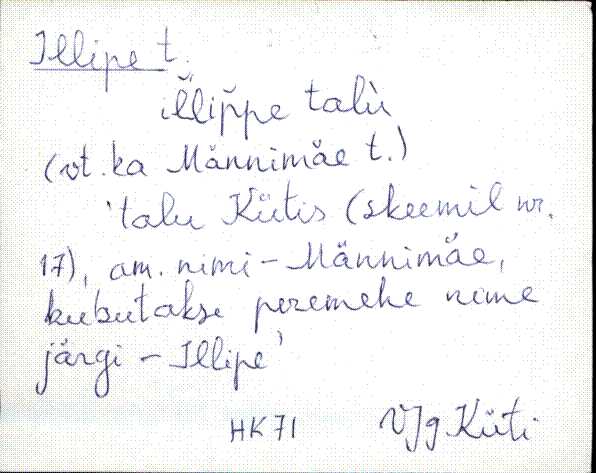 Illipe t.
ìl̆lip̆pe talù
(vt. ka Männimäe t.)
'talu Kütis (skeemil nr.
17), am. nimi - Männimäe,
kutsutakse peremehe nime
järgi - Illipe'
HK 71 VJg Küti